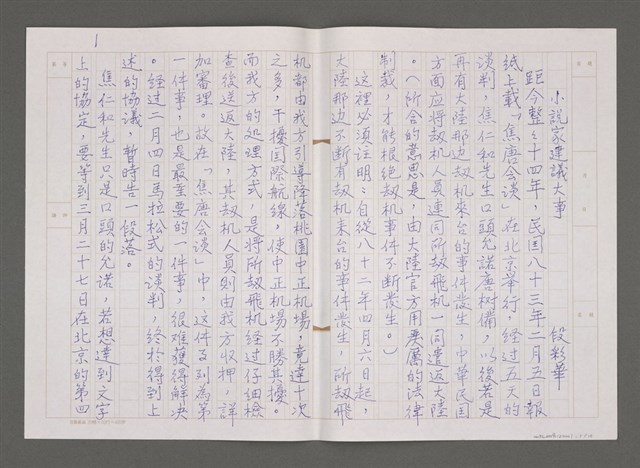 小說家建議大事
段彩華
距今整整十四年，民国八十三年二月五日報
紙上載「焦唐会谈」在北京举行，经过五天的
談判，焦仁和先生口頭允諾唐树備，以後若是
再有大陸那边劫机來台的事件發生，中華民国
方面应将劫机人員連同所劫飛机一同遣返大陸
。（所含的意思是，由大陸官方用嚴厲的法律
制裁，才能根絶劫机事件不断發生。）
這裡必須证明：自從八十二年四月六日起，
大陸那边不断有劫机来台的事件發生，所劫飛
机都由我方引導降落桃園中正机場，竟達十次
之多，干擾国際航線，使中正机場不勝其擾。
而我方的処理方式，是将所劫飛机经过仔细檢
查後送返大陸，其劫机人員則由我方收押，詳
加審理。故在「焦唐会谈」中，这件了列為第
一件事，也是最重要的一件事，很难獲得解決
。经过二月四日馬拉松式的谈判，终於得到上
述的協議，暫時告一段落。
焦仁和先生只是口頭的允诺，若想達到文字
上的協定，要等到三月二十七日在北京的第四
1